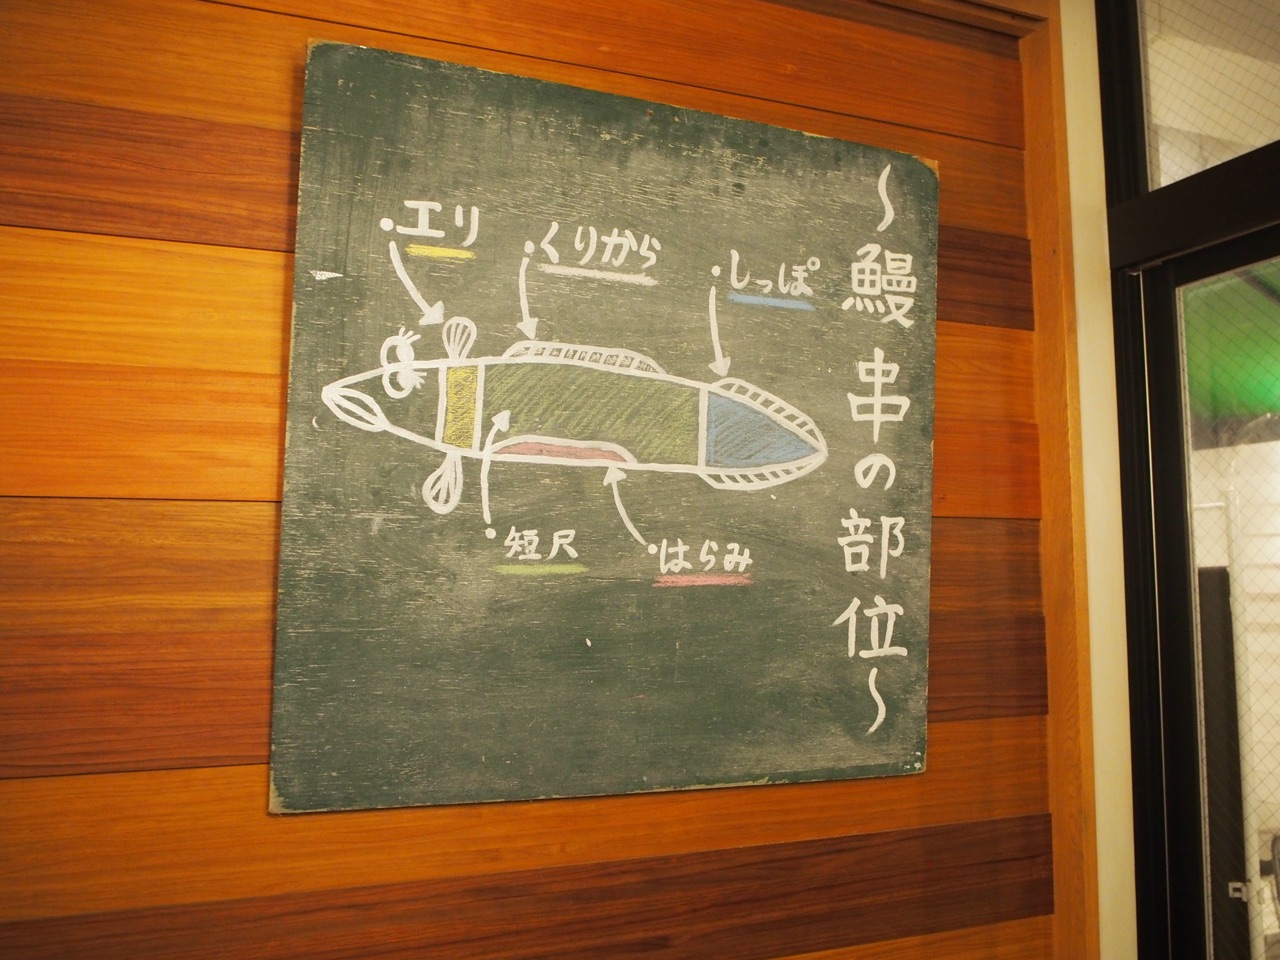 〜鰻串の部位〜
・エリ
・くりから
・しっぽ
・短尺
・はらみ